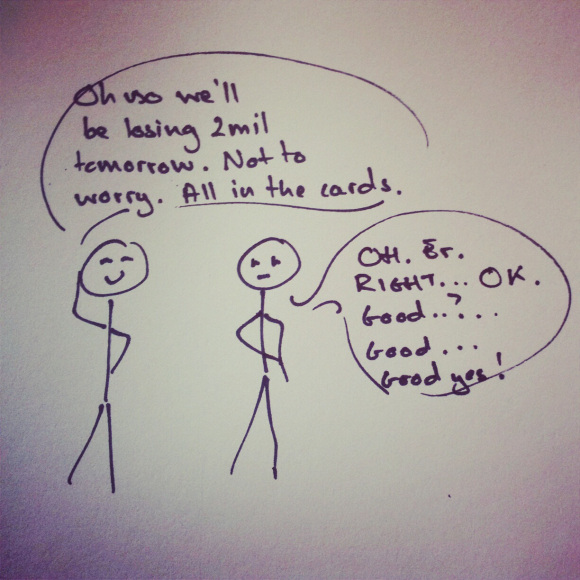 Oh so we'll
be losing 2mil
tomorrow. Not to
worry. All in the cards.
OH. Er.
RIGHT... OK.
Good..?...
Good...
Good yes!